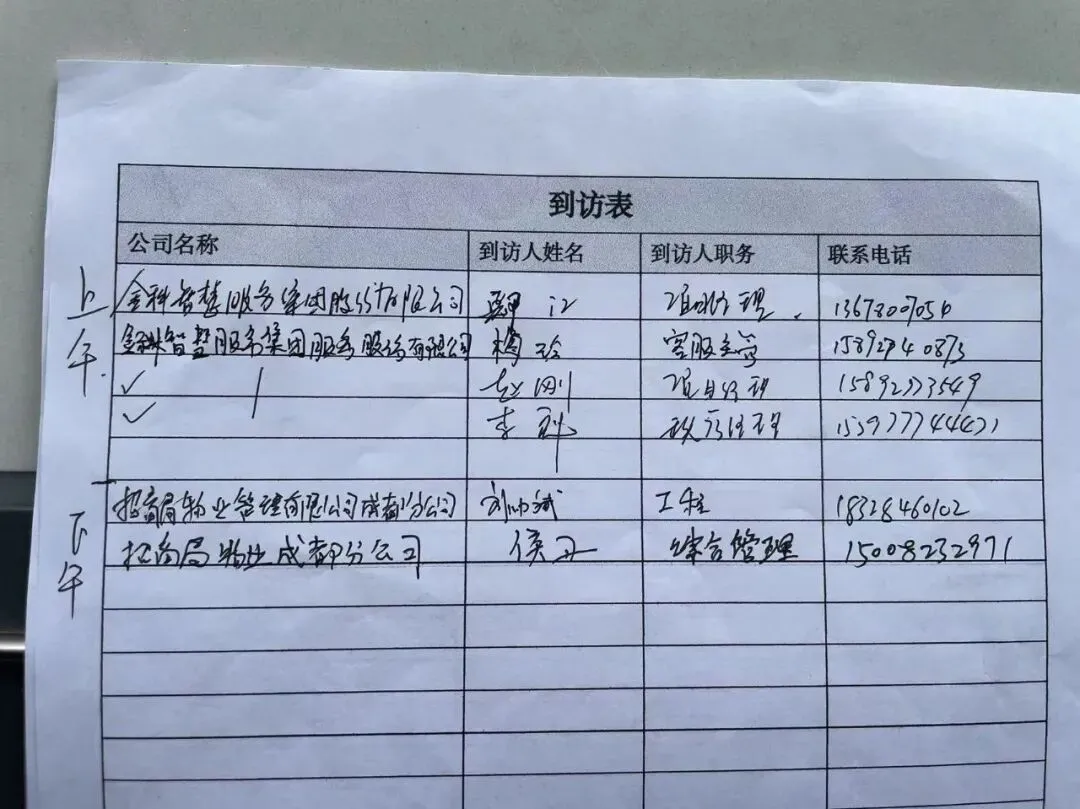 到访表
公司名称 到访人姓名 到访人职务 联系电话
上午
金科智慧服务集团股份有限公司 项目经理
金科智慧服务集团服务股份有限公司 杨玲 客服主管
✓ 赵刚 项目经理 15892773549
✓ 李 经理
下午
招商局物业管理有限公司成都分公司 刘 斌 工程 18328460102
招商局物业成都分公司 侯卫 综合管理 15008232971